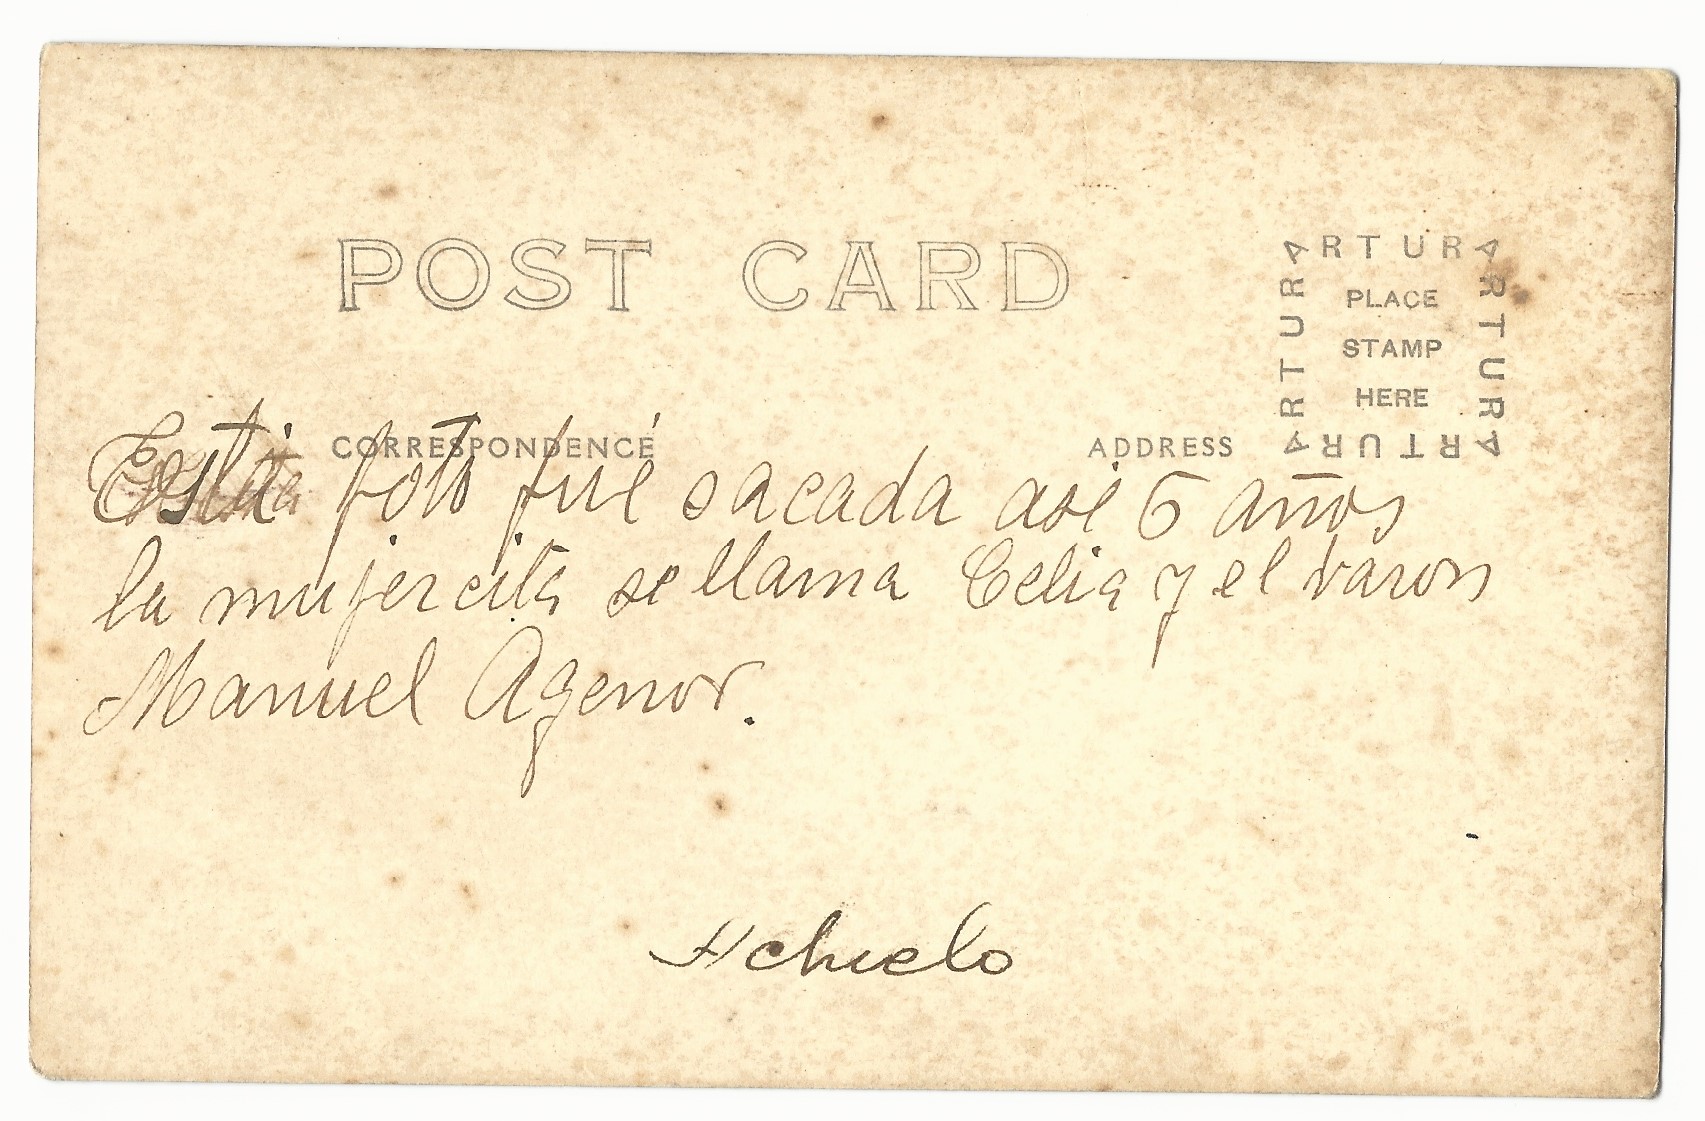 POST CARD
ARTURA
ARTURA
ARTURA
ARTURA
PLACE
STAMP
HERE
CORRESPONDENCE
ADDRESS
Esta foto fué sacada asé 6 años
la mujercita se llama Celia y el varon
Manuel Agenor.